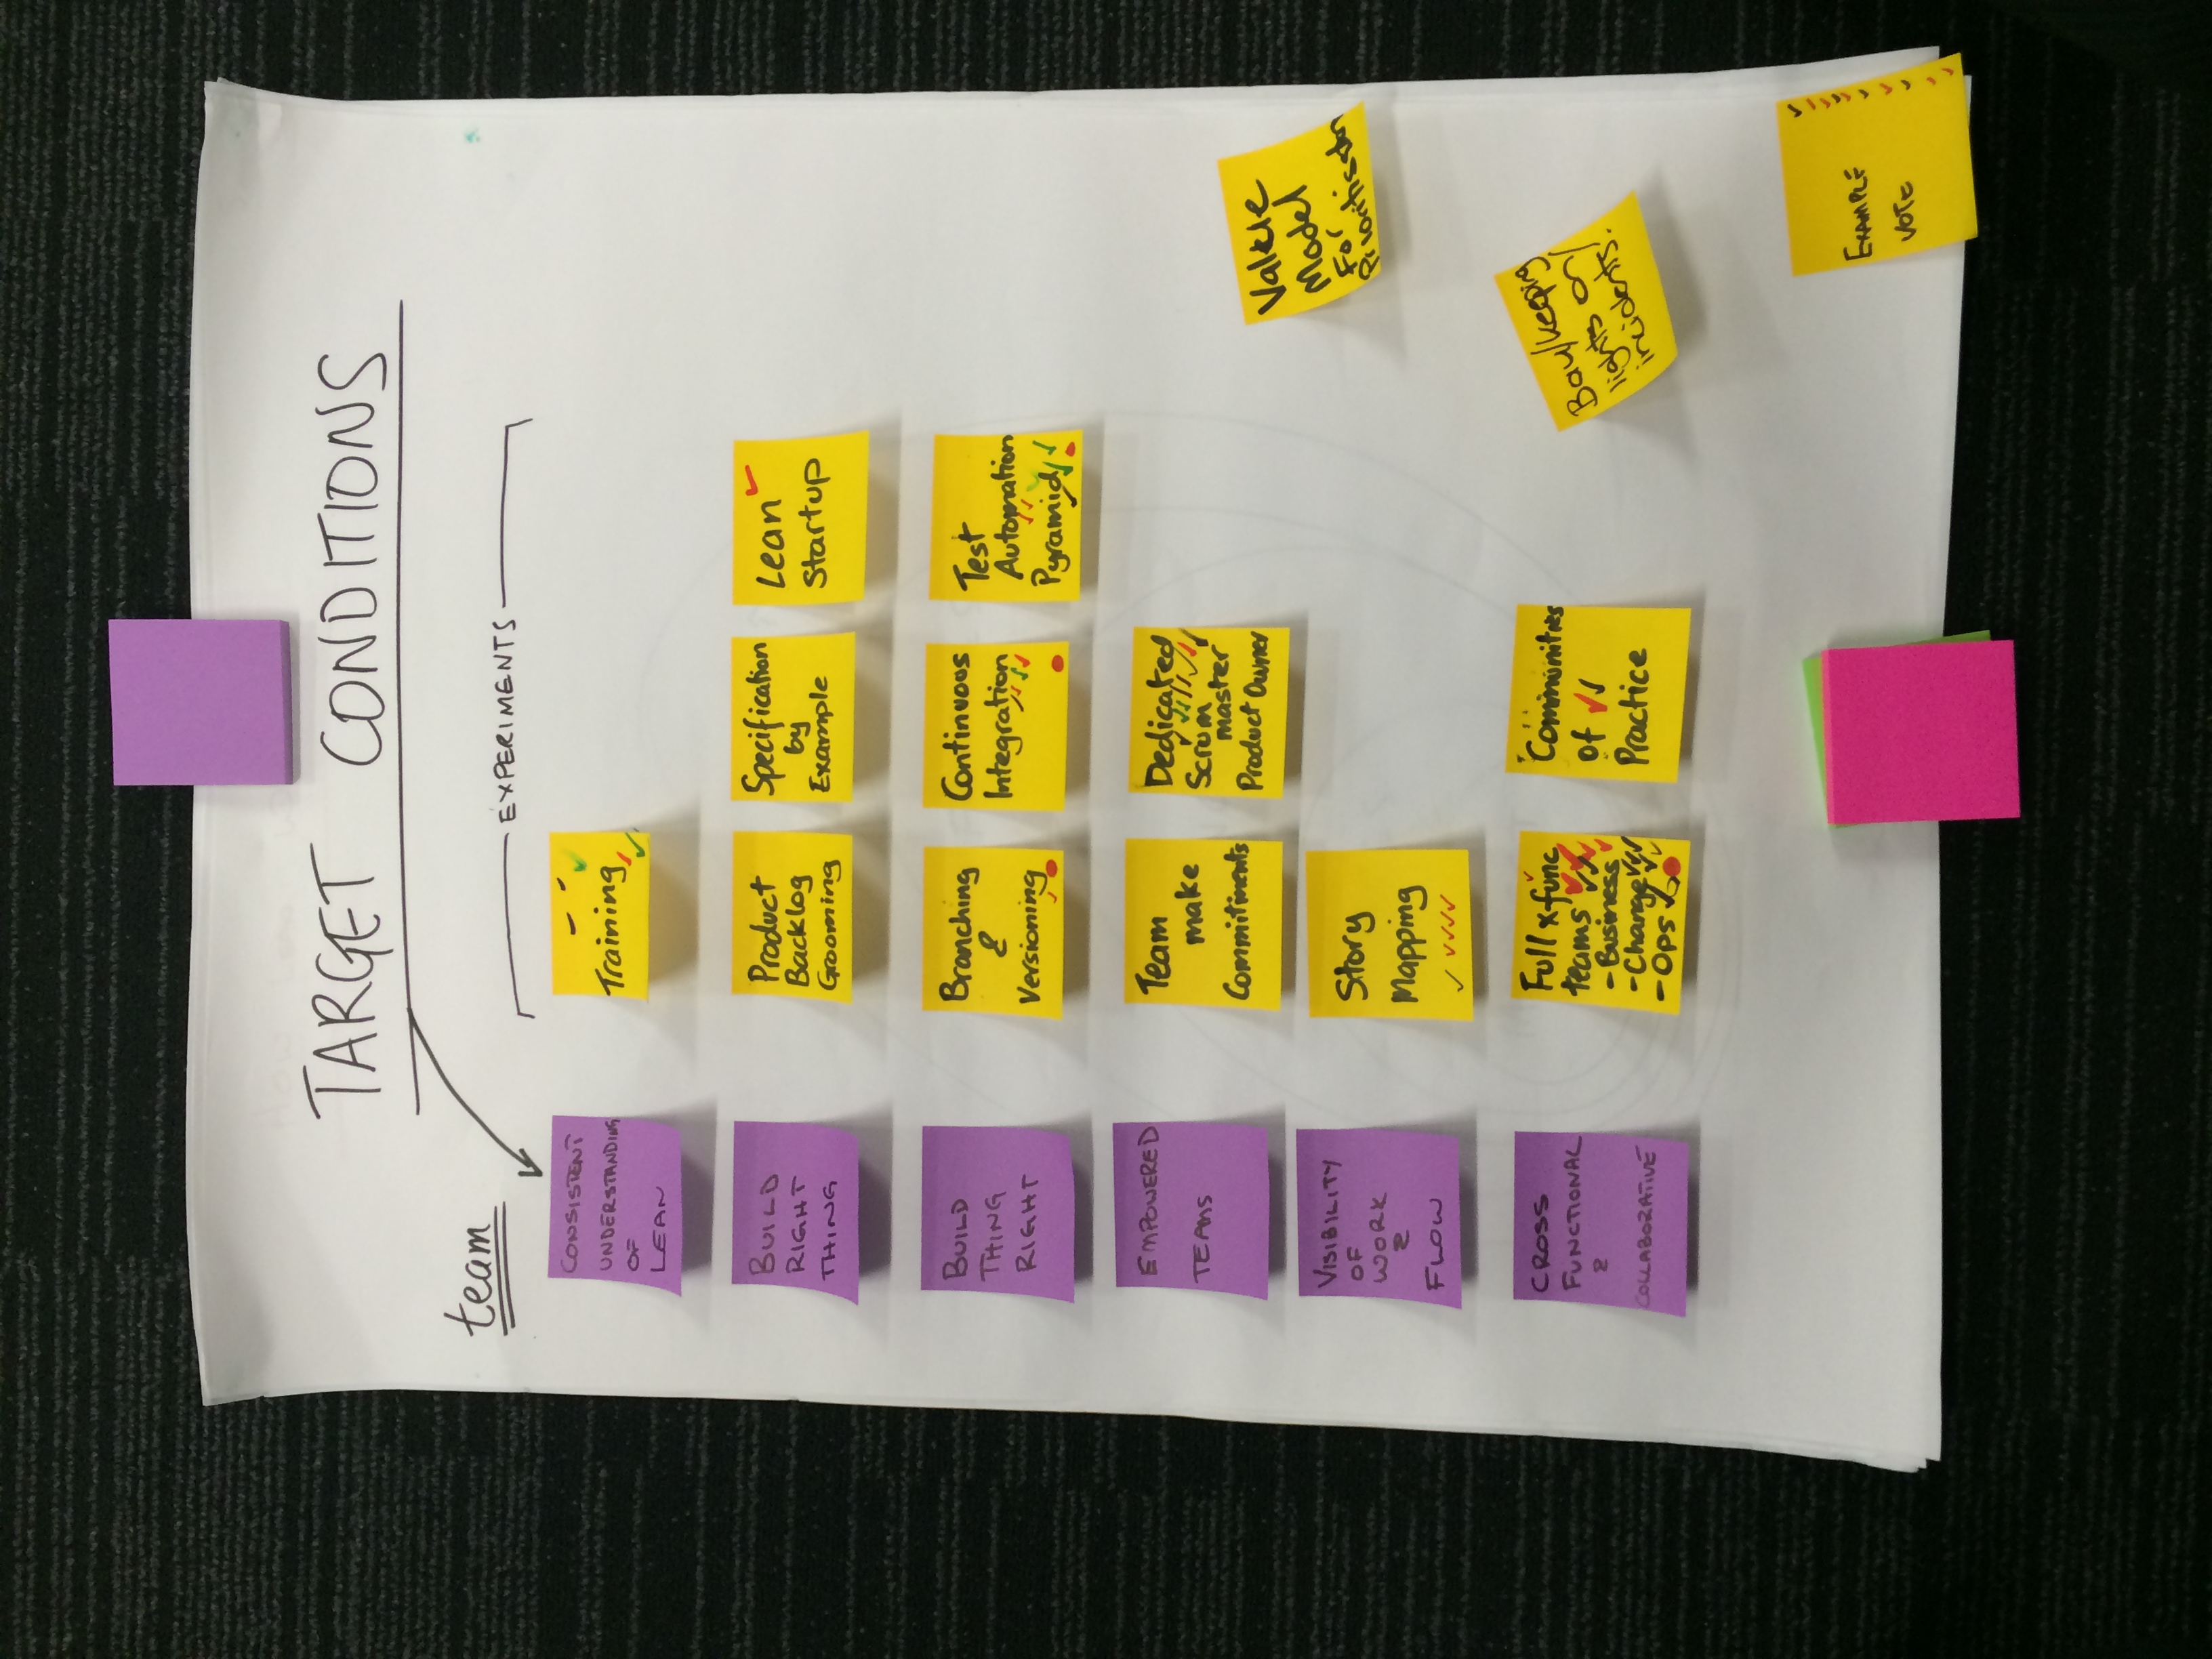 TARGET CONDITIONS
team
EXPERIMENTS
CONSISTENT
UNDERSTANDING
OF
LEAN
Training
BUILD
RIGHT
THING
Product
Backlog
Grooming
Specification
by
Example
Lean
Startup
BUILD
THING
RIGHT
Branching
&
Versioning
Continuous
Integration
Test
Automation
Pyramid
EMPOWERED
TEAMS
Team
make
Commitments
Dedicated
Scrum
master
Product Owner
VISIBILITY
OF
WORK
&
FLOW
Story
Mapping
Value
Model
For
Prioritisation
CROSS
FUNCTIONAL
&
COLLABORATIVE
Full x-func
teams
- Business
- Change
- Ops
Communities
of
Practice
Bau/keeping
lights on/
incidents.
EXAMPLE
VOTE